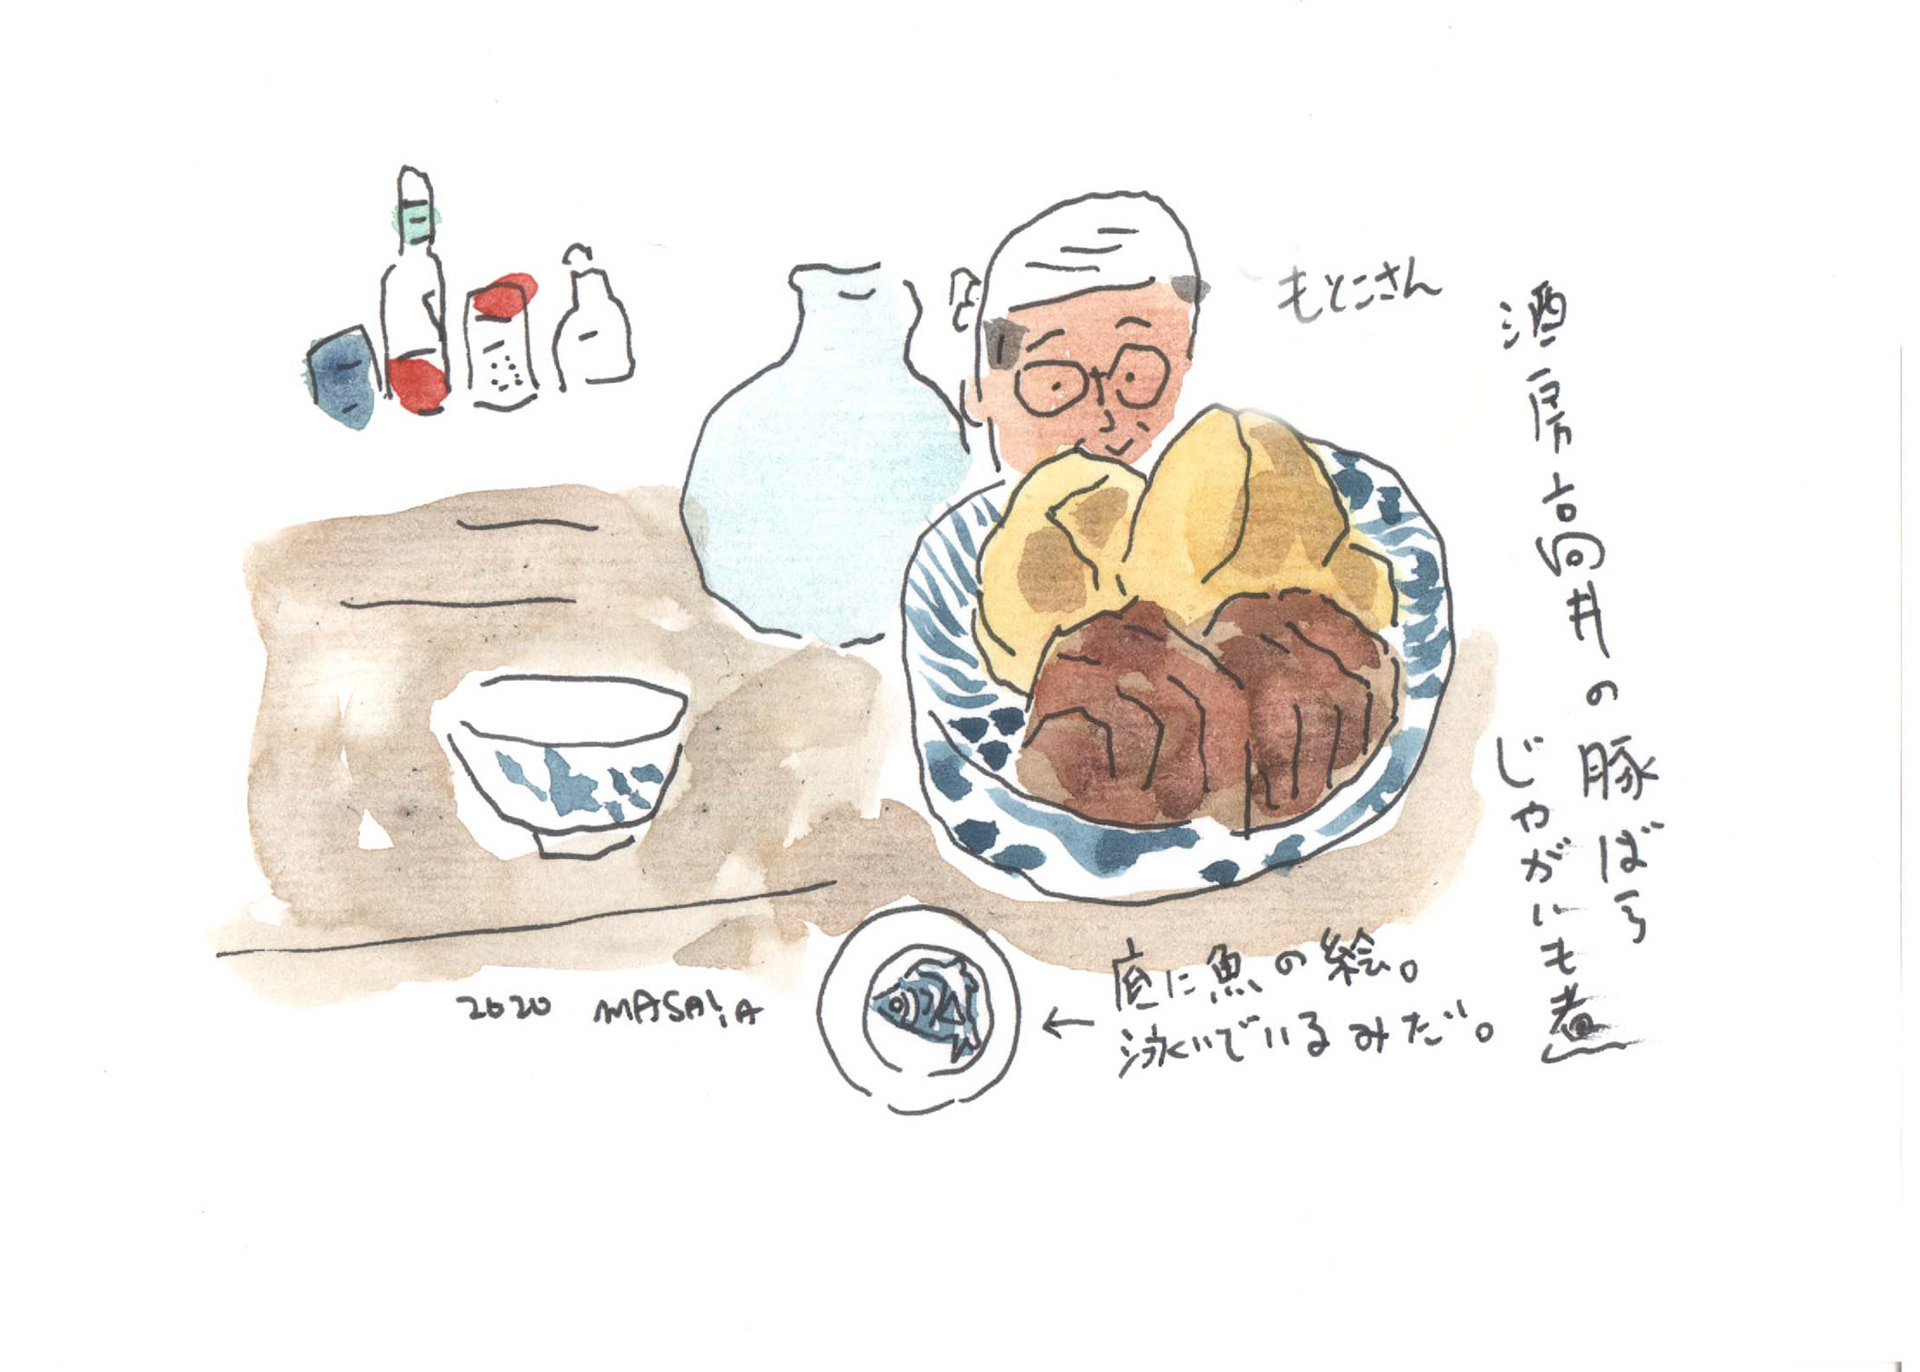 もとこさん
酒房高井の豚ばら
じゃがいも煮
底に魚の絵。
泳いでいるみだ。
2020 MASAYA